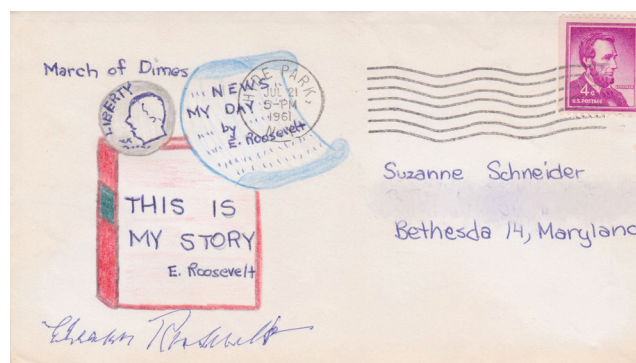 March of Dimes
LIBERTY
NEWS
MY DAY
by
E. Roosevelt
HYDE PARK,
JUL 21
5-PM
1961
4¢
U.S. POSTAGE
Suzanne Schneider
Bethesda 14, Maryland
THIS IS
MY STORY
E. Roosevelt
Eleanor Roosevelt